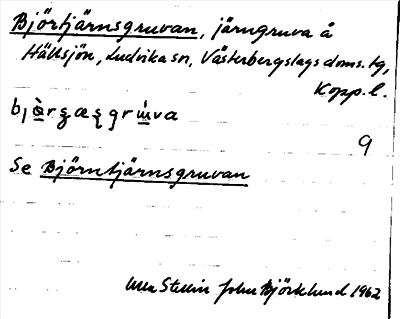 Björtjärnsgruvan, järngruva å
Hällsjön, Ludvika sn, Västerbergslags doms. tg,
Kopp. l.
9
Se Björntjärnsgruvan
Stellin John Björklund 1962